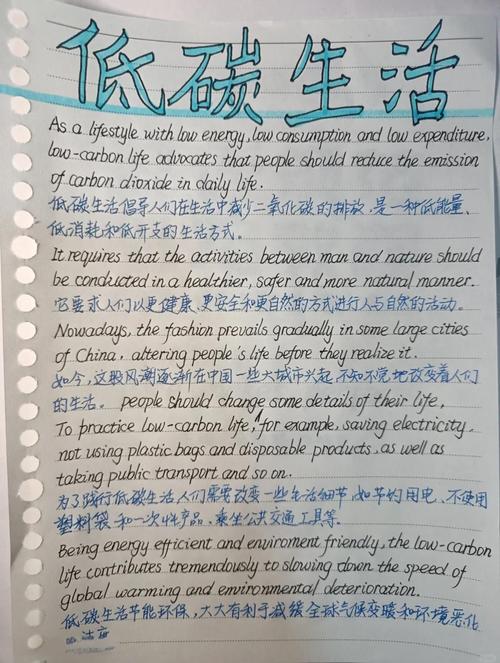 低碳生活
As a lifestyle with low energy, low consumption and low expenditure,
low-carbon life advocates that people should reduce the emission
of carbon dioxide in daily life.
低碳生活倡导人们在生活中减少二氧化碳的排放,是一种低能量、
低消耗和低开支的生活方式。
It requires that the activities between man and nature should
be conducted in a healthier, safer and more natural manner.
它要求人们以更健康、更安全和更自然的方式进行人与自然的活动。
Nowadays, the fashion prevails gradually in some large cities
of China, altering people's life before they realize it.
如今,这股风潮逐渐在中国一些大城市兴起,不知不觉地改变着人们
的生活。 people should change some details of their life,
To practice low-carbon life, for example, saving electricity,
not using plastic bags and disposable products, as well as
taking public transport and so on.
为了践行低碳生活人们需要改变一些生活细节,如节约用电、不使用
塑料袋和一次性产品、乘坐公共交通工具等。
Being energy efficient and enviroment friendly, the low-carbon
life contributes tremendously to slowing down the speed of
global warming and environmental deterioration.
低碳生活节能环保,大大有利于减缓全球气候变暖和环境恶化